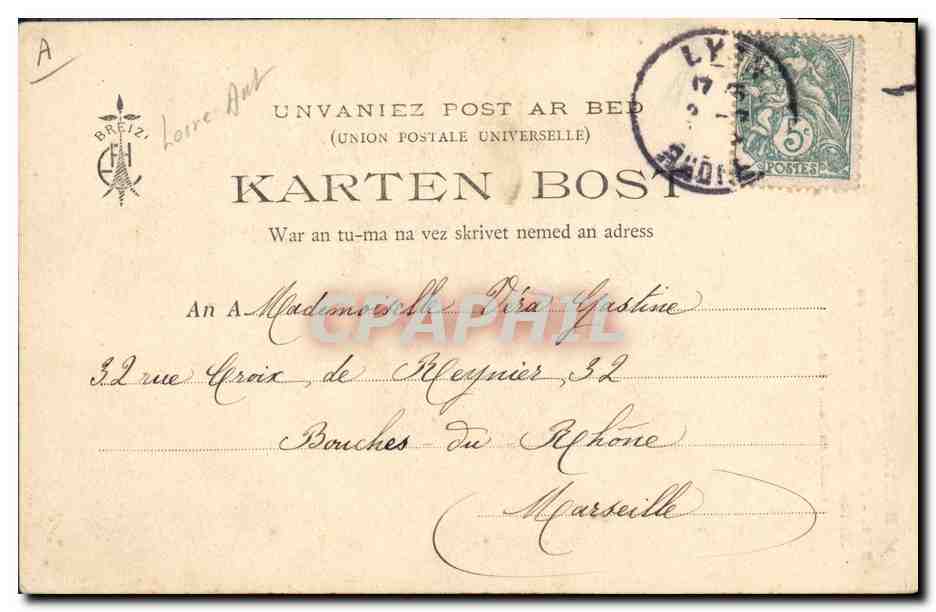 A
Loire
BREIZ'
UNVANIEZ POST AR BED
(UNION POSTALE UNIVERSELLE)
KARTEN BOST
War an tu-ma na vez skrivet nemed an adress
LYON
RHÔNE
5c
POSTES
An A Mademoiselle Véra Gastine
32 rue Croix de Reynier, 32
Bouches-du Rhône
Marseille
CPAPHIL